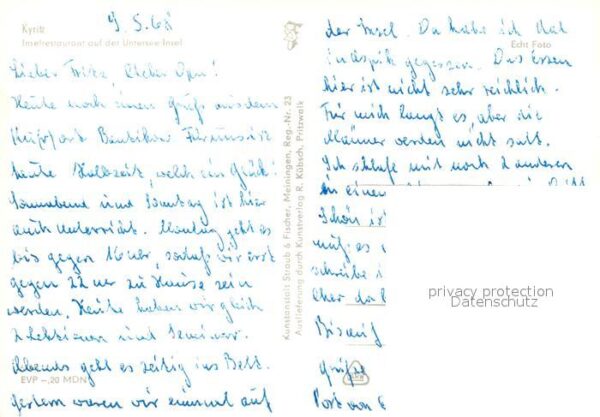 9.5.68
Kyritz
Inselrestaurant auf der Untersee-Insel
Lieber Fritz, lieber Opa!
Heute noch einen Gruß aus dem
Bantikow Für uns ist
heute Halbzeit, welch ein Glück!
Sonnabend und Sonntag ist hier
auch Unterricht. Montag geht es
bis gegen 16 Uhr, sodaß wir erst
gegen 22 Uhr zu Hause sein
werden. Heute haben wir gleich
2 Lektionen und Seminar.
Abends geht es zeitig ins Bett.
EVP -,20 MDN
Gestern waren wir einmal auf
Kunstanstalt Straub & Fischer, Meiningen, Reg.-Nr. 23
Auslieferung durch Kunstverlag R. Kübsch, Pritzwalk
der Insel. Da habe ich Aal
in Aspik gegessen. Das Essen
Echt Foto
hier ist nicht sehr reichlich.
Für mich langt es, aber die
Männer werden nicht satt.
Ich schlafe mit noch 2 anderen
in einer
Schön ist
muß es
schreibe
Eher da
privacy protection
Datenschutz
Bis auf
Grüße
Post von